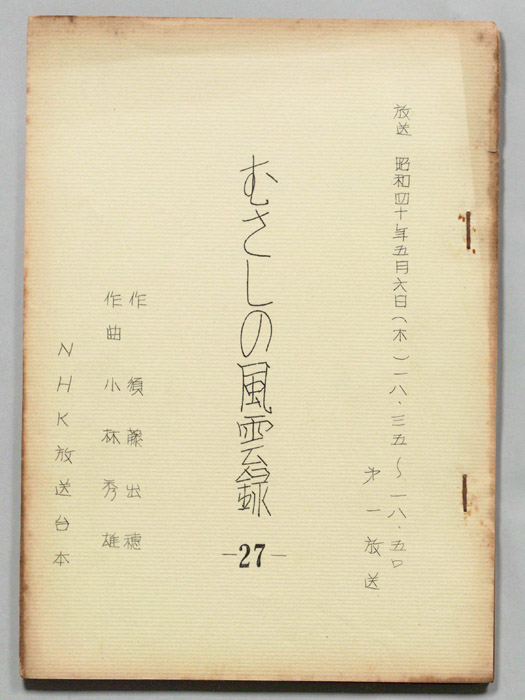 放送 昭和四十年五月六日(木)一八・三五〜一八・五〇
第一放送
むさしの風雲録
-27-
作 須藤出穂
作曲 小林秀雄
NHK放送台本